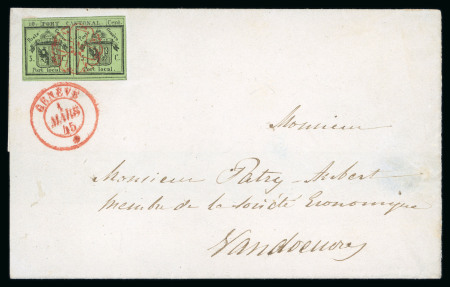 10. PORT CANTONAL Cent.
Poste
5 C.
Port local Port local
GENÈVE
1
MARS
45
Monsieur
Monsieur Patry Aubert
membre de la société Economique
Vandoeuvres